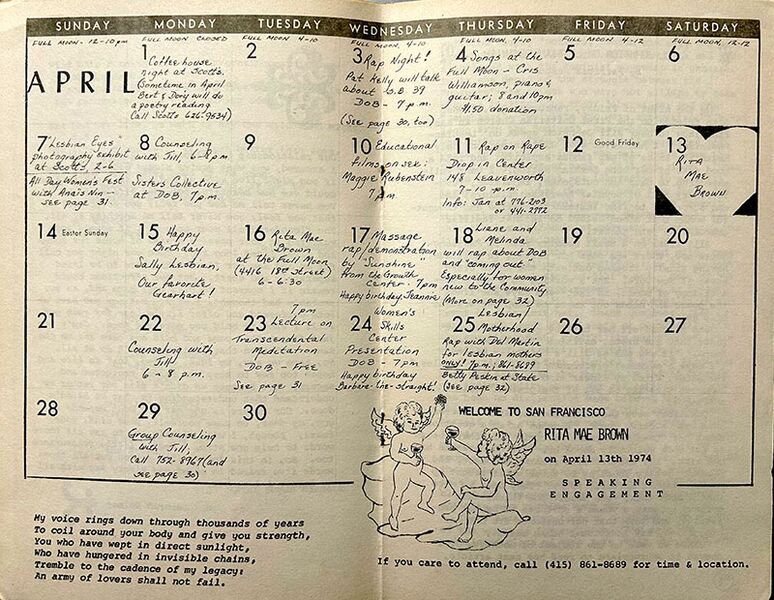 SUNDAY MONDAY TUESDAY WEDNESDAY THURSDAY FRIDAY SATURDAY
FULL MOON - 12-10pm FULL MOON CLOSED FULL MOON 4-10 FULL MOON, 4-10 FULL MOON, 4-10 FULL MOON - 4-12 FULL MOON, 12-12
APRIL
1 Coffee house
night at Scott's.
(Sometime in April
Bert & Dory will do
a poetry reading
Call Scotts 626-9534)
2
3 Rap Night!
Pat Kelly will talk
about O.B. 39
DOB - 7 p.m.
(See page 30, too)
4 Songs at the
Full Moon - Cris
Williamson, piano &
guitar; 8 and 10pm
$1.50 donation
5
6
7 "Lesbian Eyes"
photography exhibit
at Scott's, 2-6
All Day Women's Fest
with Anais Nin -
see page 31
8 Counseling
with Jill, 6-8pm
Sisters Collective
at DOB, 7p.m.
9
10 Educational
films on sex:
Maggie Rubenstein
7pm
11 Rap on Rape
Drop in Center
148 Leavenworth
7-10 p.m.
Info: Jan at 776-2103
or 441-2772
12 Good Friday
13
RITA
MAE
BROWN
14 Easter Sunday
15 Happy
Birthday
Sally Lesbian,
Our favorite
Gearhart!
16 Rita Mae
Brown
at the Full Moon
(4416 18th Street)
6-6:30
17 Massage
rap/demonstration
by "Sunshine"
from the Growth
Center. 7pm
Happy birthday, Jeannie
18 Liane and
Melinda
will rap about DOB
and "coming out"
Especially for women
new to the Community
(More on page 32)
19
20
21
22
Counseling with
Jill
6-8 p.m.
7pm
23 Lecture on
Transcendental
Meditation
DOB - Free
See page 31
Women's
24 Skills
Center
Presentation
DOB - 7pm
Happy birthday
Barbara-the-Straight!
Lesbian/
25 Motherhood
Rap with Del Martin
for lesbian mothers
only! 7p.m.; 861-8689
Betty Peskin at State
(See page 32)
26
27
28
29
Group Counseling
with Jill,
Call 752-8967 (and
see page 30)
30
WELCOME TO SAN FRANCISCO
RITA MAE BROWN
on April 13th 1974
SPEAKING
ENGAGEMENT
My voice rings down through thousands of years
To coil around your body and give you strength,
You who have wept in direct sunlight,
Who have hungered in invisible chains,
Tremble to the cadence of my legacy:
An army of lovers shall not fail.
If you care to attend, call (415) 861-8689 for time & location.